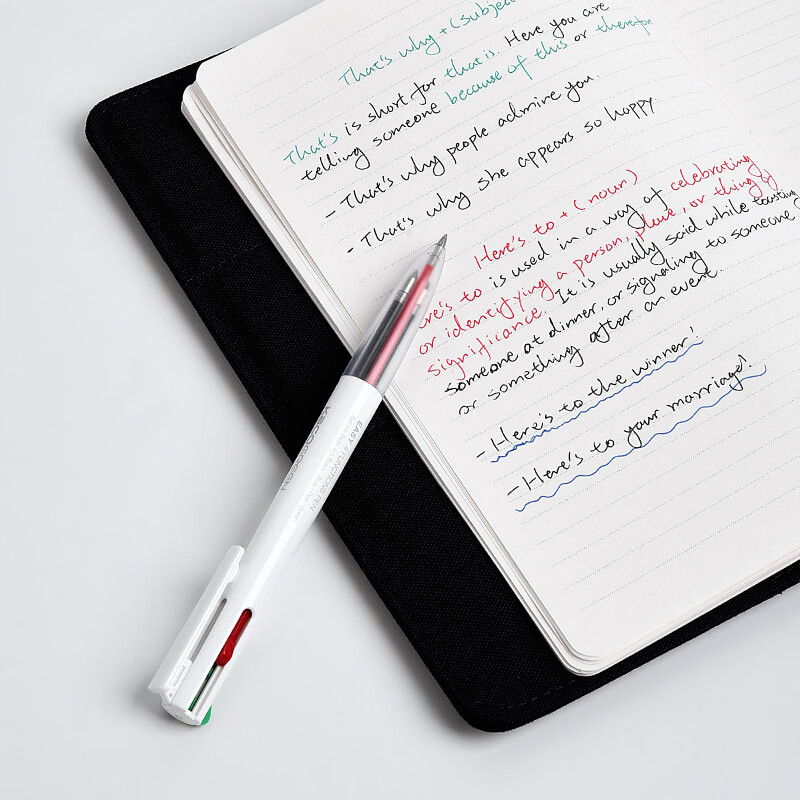 That's why + (subje
That's is short for that is. Here you are
telling someone because of this or therefor
- That's why people admire you.
- That's why she appears so happy
Here's to + (noun)
re's to is used in a way of celebrating
or identifying a person, place, or thing of
significance. It is usually said while toasting
someone at dinner, or signaling to someone
or something after an event.
- Here's to the winner!
- Here's to your marriage!
KACOGREEN
EASY 4 FUNCTIONS PEN